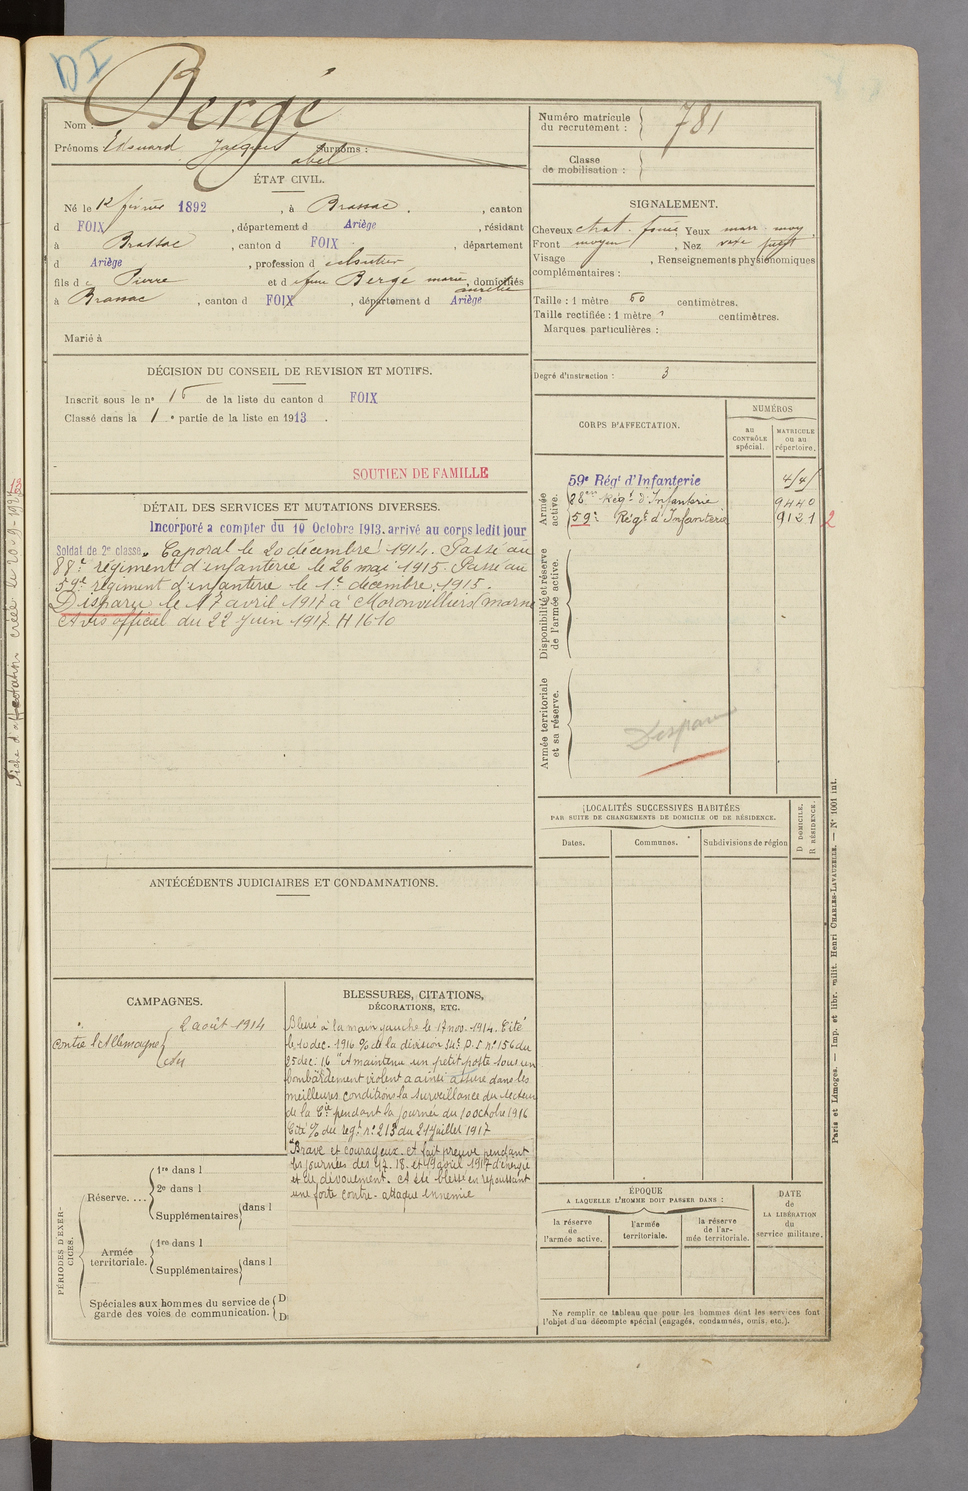 DI
Nom : Bergé
Prénoms Edouard Jacques Surnoms :
abel
ÉTAT CIVIL.
Né le 12 février 1892, à Brassac, canton
d FOIX, département d Ariège, résidant
à Brassac, canton d FOIX, département
d Ariège, profession d
fils de Pierre et d feue Bergé marie, domiciliés
aurélie
à Brassac, canton d FOIX, département d Ariège
Marié à
DÉCISION DU CONSEIL DE REVISION ET MOTIFS.
Inscrit sous le nº 15 de la liste du canton d FOIX
Classé dans la 1e partie de la liste en 1913.
SOUTIEN DE FAMILLE
DÉTAIL DES SERVICES ET MUTATIONS DIVERSES.
Incorporé à compter du 10 Octobre 1913. arrivé au corps ledit jour
Soldat de 2e classe. Caporal le 20 décembre 1914. Passé au
88e régiment d'infanterie le 26 mai 1915. Passé au
59e régiment d'infanterie le 1er décembre 1915.
Disparu le 17 avril 1917 à Moronvilliers (marne
Avis officiel du 22 Juin 1917. H 1610
ANTÉCÉDENTS JUDICIAIRES ET CONDAMNATIONS.
CAMPAGNES.
2 août 1914
Contre l'Allemagne
au
BLESSURES, CITATIONS,
DÉCORATIONS, ETC.
Blessé à la main gauche le 17 nov. 1914. Cité
le 10 dec. 1916 % de la division nº 156 du
25 dec. 16 "A maintenu un petit poste sous un
bombardement violent a ainsi assuré dans les
meilleures conditions la surveillance du secteur
de la Cie pendant la journée du 10 octobre 1916
Cité % du regt nº 213 du 21 juillet 1917
"Brave et courageux. et fait preuve pendant
les journées des 17. 18. et 19 avril 1917 d'énergie
et de dévouement. A été blessé en repoussant
une forte contre-attaque ennemie
PÉRIODES D'EXERCICES.
Réserve....
1re dans l
2e dans l
Supplémentaires dans l
Armée territoriale.
1re dans l
Supplémentaires dans l
Spéciales aux hommes du service de garde des voies de communication.
D
D
Numéro matricule du recrutement : 781
Classe de mobilisation :
SIGNALEMENT.
Cheveux chat. foncé, Yeux marr. moy.
Front moyen, Nez
Visage, Renseignements physionomiques
complémentaires :
Taille : 1 mètre 60 centimètres.
Taille rectifiée : 1 mètre centimètres.
Marques particulières :
Degré d'instruction : 3
CORPS D'AFFECTATION.
NUMÉROS
au CONTRÔLE spécial.
MATRICULE ou au répertoire.
Armée active.
59e Régt d'Infanterie
Régt d'Infanterie 9440
59e Régt d'Infanterie 9121 2
Disponibilité et réserve de l'armée active.
Armée territoriale et sa réserve.
Disparu
LOCALITÉS SUCCESSIVES HABITÉES
PAR SUITE DE CHANGEMENTS DE DOMICILE OU DE RÉSIDENCE.
Dates.
Communes.
Subdivisions de région
D DOMICILE.
R RÉSIDENCE.
ÉPOQUE
A LAQUELLE L'HOMME DOIT PASSER DANS :
la réserve de l'armée active.
l'armée territoriale.
la réserve de l'armée territoriale.
DATE de LA LIBÉRATION du service militaire.
Ne remplir ce tableau que pour les hommes dont les services font
l'objet d'un décompte spécial (engagés, condamnés, omis, etc.).
Paris et Limoges. — Imp. et libr. milit. Henri CHARLES-LAVAUZELLE. — Nº 1001 int.